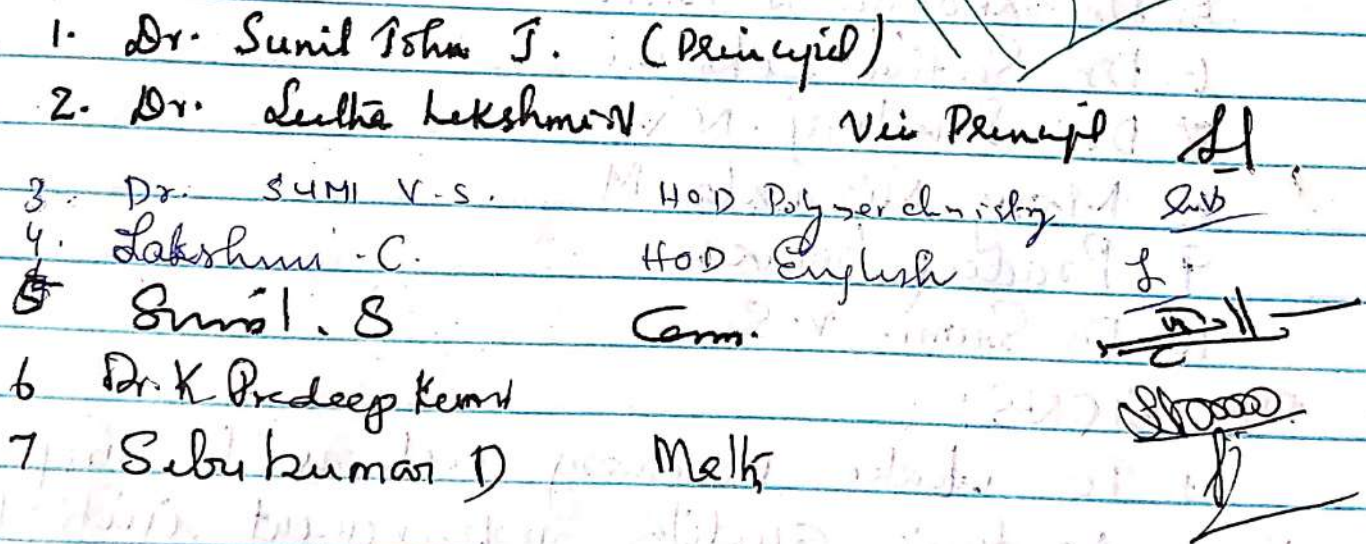 1. Dr. Sunil John J. (Principal)
2. Dr. Lekshmi V Vice Principal
3. Dr. SUMI V.S. HOD Polymer chemistry
4. Lakshmi .C. HOD English
5 Sunil. S Comm.
6 Dr. K Pradeep Kumar
7 Sebukumar D Maths